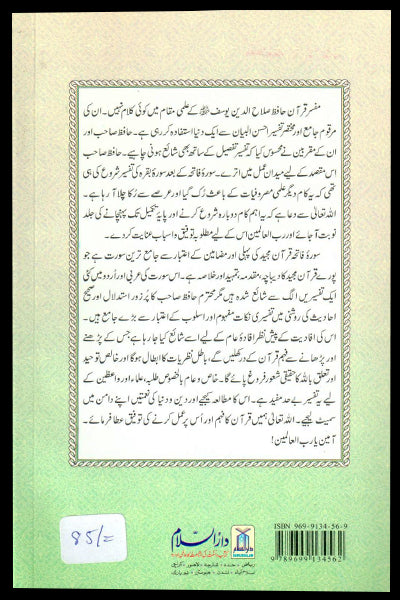 مفسرِ قرآن حافظ صلاح الدین یوسف ﷾ کے علمی مقام میں کوئی کلام نہیں۔ ان کی
مرقوم جامع اور مختصر تفسیر احسن البیان سے ایک دنیا استفادہ کر رہی ہے۔ حافظ صاحب اور
ان کے مقربین نے محسوس کیا کہ تفسیر تفصیل کے ساتھ بھی شائع ہونی چاہیے۔ حافظ صاحب
اس مقصد کے لیے میدانِ عمل میں اترے۔ سورۂ فاتحہ کے بعد سورۂ بقرہ کی تفسیر شروع کی ہی
تھی کہ یہ کام دیگر علمی مصروفیات کے باعث رُک گیا اور عرصے سے رُکا چلا آ رہا ہے۔
اللہ تعالیٰ سے دعا ہے کہ یہ اہم کام دوبارہ شروع کرنے اور پایۂ تکمیل تک پہنچانے کی جلد
نوبت آ جائے اور رب العالمین اس کے لیے مطلوبہ توفیق و اسباب عنایت کر دے۔
سورۂ فاتحہ قرآن مجید کی پہلی اور مضامین کے اعتبار سے جامع ترین سورت ہے جو
پورے قرآن مجید کا دیباچہ، مقدمہ، تمہید اور خلاصہ ہے۔ اس سورت کی عربی اور اُردو میں کئی
ایک تفسیریں الگ سے شائع شدہ ہیں مگر محترم حافظ صاحب کا پُر زور استدلال اور صحیح
احادیث کی روشنی میں تفسیری نکات مفہوم اور اسلوب کے اعتبار سے بڑے جامع ہیں۔
اس کی افادیت کے پیش نظر افادۂ عام کے لیے اسے شائع کیا جا رہا ہے جس کے پڑھنے
اور پڑھانے سے فہمِ قرآن کے در کھلیں گے، باطل نظریات کا ابطال ہو گا اور خالص توحید
اور تعلق باللہ کا حقیقی شعور فروغ پائے گا۔ خاص و عام بالخصوص طلبہ، علماء اور واعظین کے
لیے یہ تفسیر بے حد مفید ہے۔ اس کا مطالعہ کیجیے اور دین و دنیا کی نعمتیں اپنے دامن میں
سمیٹ لیجیے۔ اللہ تعالیٰ ہمیں قرآن کا فہم اور اُس پر عمل کرنے کی توفیق عطا فرمائے۔
آمین یا رب العالمین!
85/=
دارالسلام
ISBN 969-9134-56-9
9789699134562